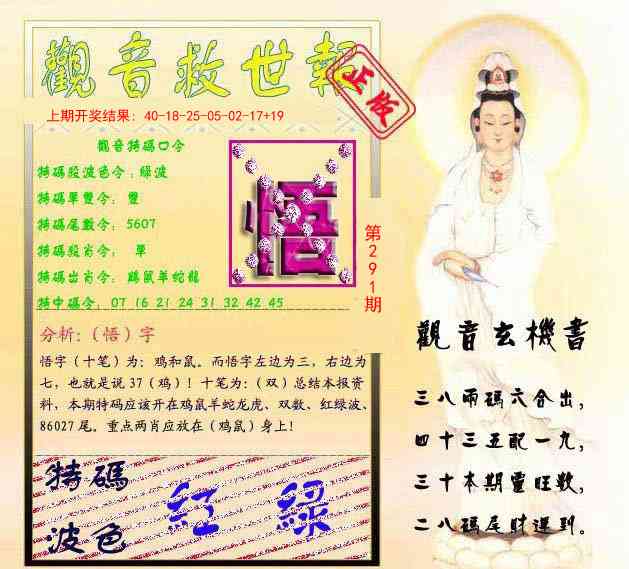 觀音救世報
正版
上期开奖结果：40-18-25-05-02-17+19
觀音特碼口令
特碼段波色令：綠波
特碼單雙令： 雙
特碼尾數令：5607
特碼段肖令： 單
特碼出肖令：鷄鼠羊蛇龍
特中碼令：07 16 21 24 31 32 42 45
悟
第291期
分析:（悟）字
悟字（十笔）为：鸡和鼠。而悟字左边为三，右边为
七，也就是说 37（鸡）！十笔为:（双）总结本报资
料，本期特码应该开在鸡鼠羊蛇龙虎、双数、红绿波、
86027 尾。重点两肖应放在（鸡鼠）身上！
特碼
波色
紅 綠
觀音玄機書
三八兩碼六合出，
四十三五配一九，
三十本期靈旺数，
二八碼尾財運到。